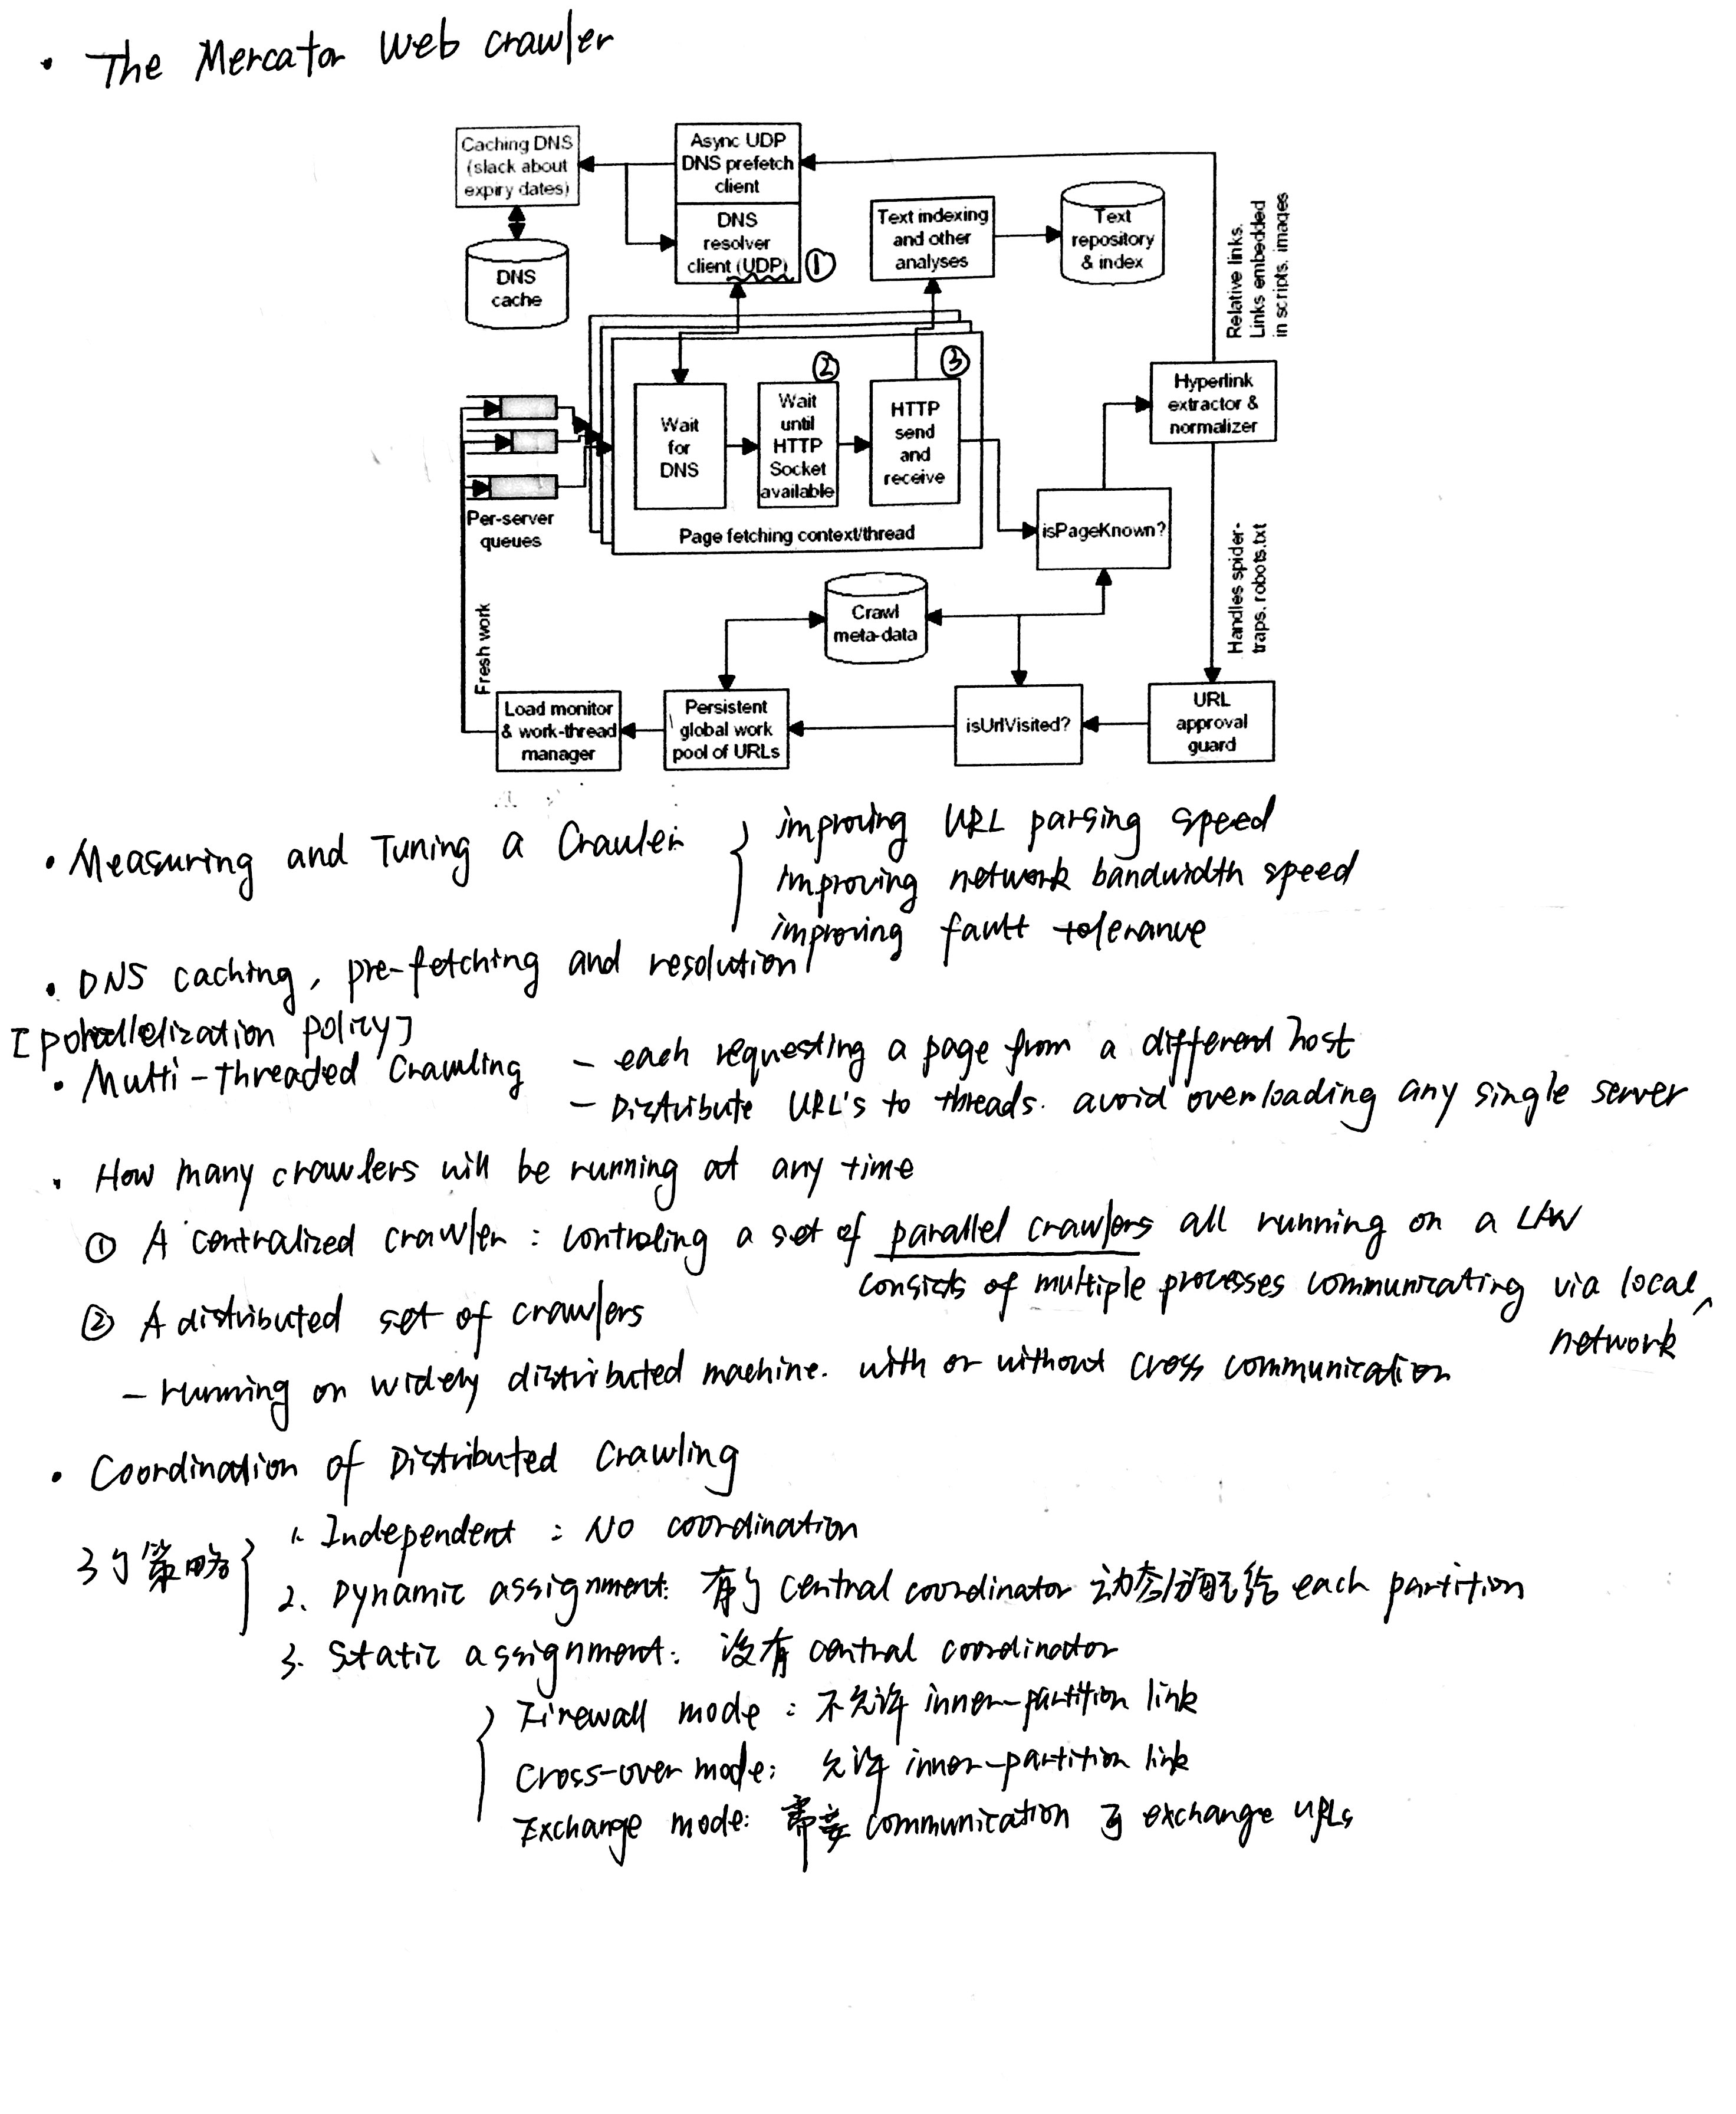 • The Mercator Web crawler
Caching DNS
(slack about
expiry dates)
DNS
cache
Async UDP
DNS prefetch
client
DNS
resolver
client (UDP) ①
Text indexing
and other
analyses
Text
repository
& index
Relative links.
Links embedded
in scripts. images
Per-server
queues
Wait
for
DNS
②
Wait
until
HTTP
Socket
available
③
HTTP
send
and
receive
Page fetching context/thread
Hyperlink
extractor &
normalizer
isPageKnown?
Handles spider-
traps. robots.txt
Crawl
meta-data
Fresh work
Load monitor
& work-thread
manager
Persistent
global work
pool of URLs
isUrlVisited?
URL
approval
guard
• Measuring and Tuning a Crawler
improving URL parsing speed
improving network bandwidth speed
improving fault tolerance
• DNS caching, pre-fetching and resolution
[parallelization policy]
• Multi-threaded Crawling
- each requesting a page from a different host
- Distribute URL's to threads. avoid overloading any single server
• How many crawlers will be running at any time
① A centralized crawler: controling a set of parallel crawlers all running on a LAN
consists of multiple processes communicating via local network
② A distributed set of crawlers
- running on widely distributed machine. with or without cross communication
• Coordination of Distributed Crawling
3个策略
1. Independent: No coordination
2. Dynamic assignment: 有个 central coordinator 动态分配给 each partition
3. Static assignment: 没有 central coordinator
Firewall mode: 不允许 inner-partition link
Cross-over mode: 允许 inner-partition link
Exchange mode: 需要 communication exchange URLs